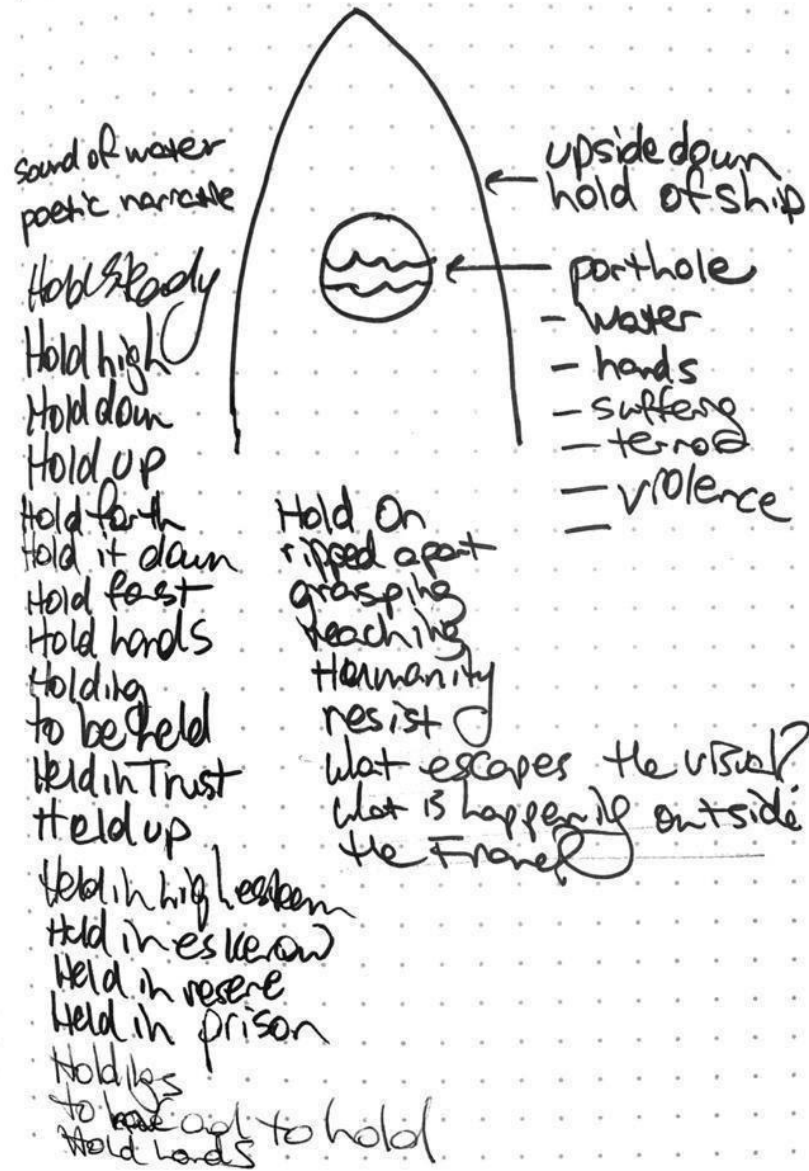 sound of water
poetic narrative
Hold steady
Hold high
Hold down
Hold up
Hold forth
Hold it down
Hold fast
Hold hands
Holding
to be held
Held in Trust
Held up
Held in high esteem
Held in eskerow
Held in resere
Held in prison
Holdings
to have and to hold
Hold hands
upside down
hold of ship
porthole
- water
- hands
- suffering
- terror
- violence
-
Hold On
ripped apart
grasping
Reaching
Humanity
resist
What escapes the visual?
What is happening outside
the Frame?